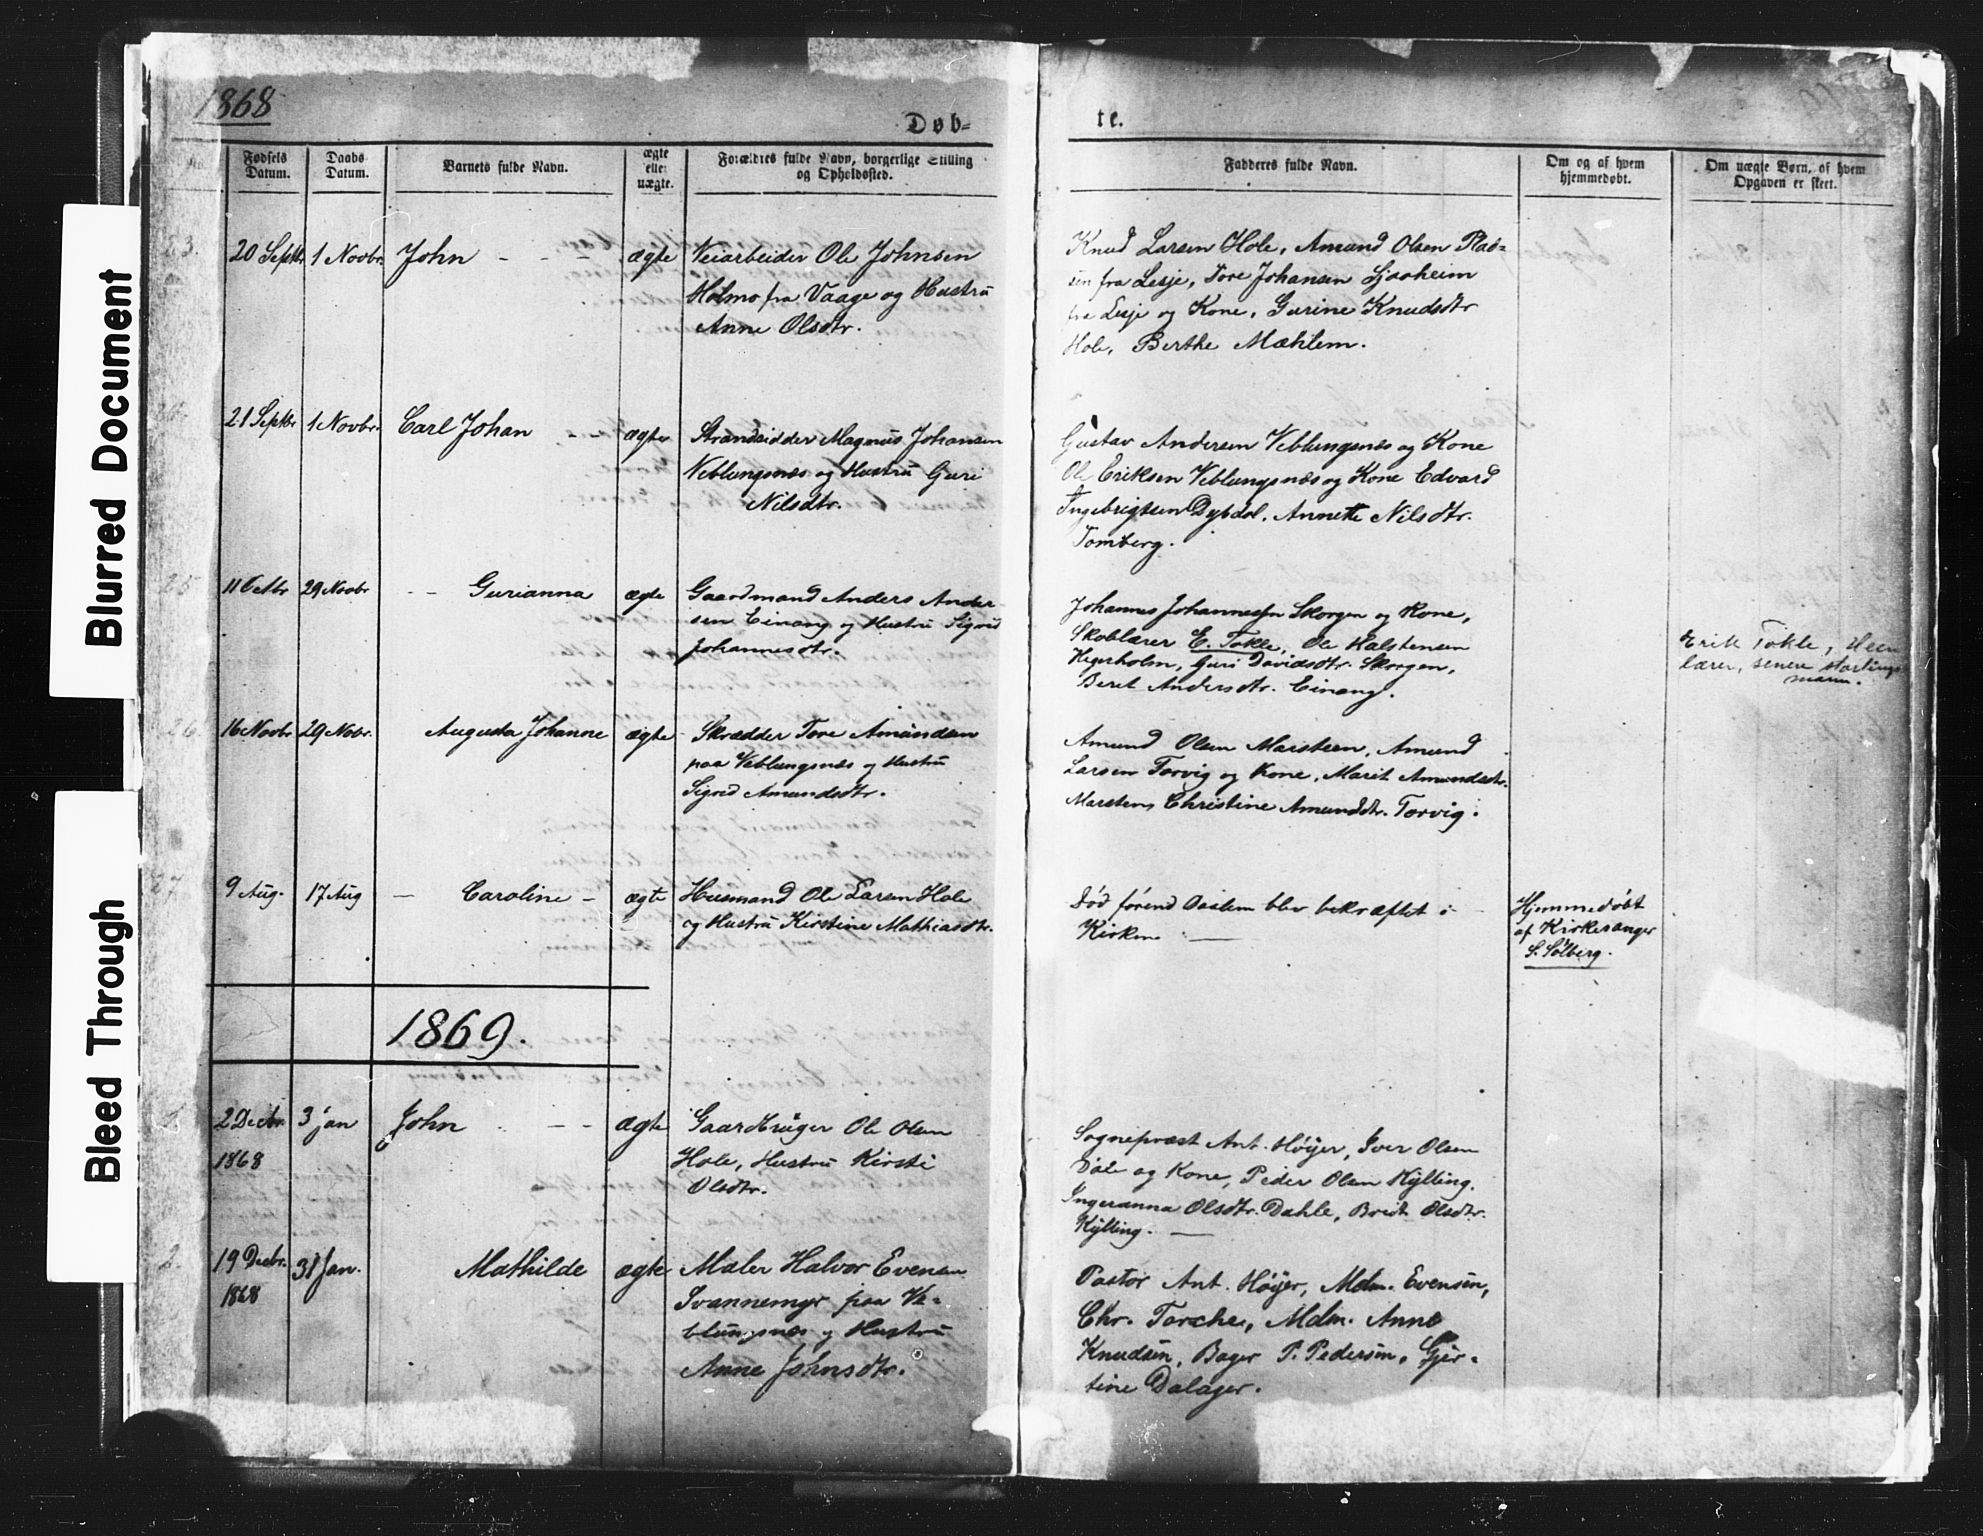 1868
Døb=
te.
No.
Fødsels Datum.
Daabs Datum.
Barnets fulde Navn.
ægte eller uægte.
Forældres fulde Navn, borgerlige Stilling og Opholdssted.
Fadderes fulde Navn.
Om og af hvem hjemmedøbt.
Om uægte Børn, af hvem Opgaven er skeet.
23.
20 Septbr
1 Novbr.
John - - -
ægte
Veiarbeider Ole Johnsen
Holmo fra Vaage og Hustru
Anne Olsdtr.
Knud Larsen Hole, Amund Olsen Plads-
sen fra Lesje, Tore Johansen
fra Lesje og Kone, Gurine Knudsdtr
Hole, Berthe Mæhlem.
21 Septbr
1 Novbr.
Carl Johan -
ægte
Strandsidder Magnus Johansen
Veblungsnæs og Hustru Guri
Nilsdtr.
Gustav Andersen Veblungsnæs og Kone
Ole Eriksen Veblungsnæs og Kone Edvard
Ingebrigtsen Dybdal, Annette Nilsdtr.
Tomberg.
25
11 Octbr
29 Novbr
- - Gurianna
ægte
Gaardmand Anders Ander-
sen Einang og Hustru Sigrid
Johannesdtr.
Johannes Johannessen Skorgen og Kone,
Skolelærer E. Tokle, Ole Halstensen
Hegerholm, Guri Davidsdtr. Skorgen,
Beret Andersdtr. Einang.
Erik Tokle, Heen
lærer, senere stortings
mann.
26
16 Novbr
29 Novbr.
Augusta Johanne
ægte
Skrædder Tore Amundsen
paa Veblungsnæs og Hustru
Sigrid Amundsdtr.
Amund Olsen Marsteen, Amund
Larsen Torvig og Kone, Marit Amundsdtr.
Marsteen, Christine Amundsdtr. Torvig.
27
9 Aug.
17 Aug
- Caroline -
ægte
Husmand Ole Larsen Hole
og Hustru Kirstine Mathiasdtr.
Død førend Daaben blev bekræftet i
Kirken. -
Hjemmedøbt
af Kirkesanger
S. Sølberg.
1869.
1.
2 Decbr.
1868
3 jan
John - -
ægte
Gaardbruger Ole Olsen
Hole, Hustru Kirsti
Olsdtr.
Sognepræst Ant. Høyer, Iver Olsen
Dale og Kone, Peder Olsen Kylling.
Ingeranna Olsdtr. Dahle, Bredt Olsdtr.
Kylling. -
2.
19 Decbr.
1868
31 Jan.
Mathilde
ægte
Maler Halvor Evensen
Svannemyr paa Ve-
blungsnæs og Hustru
Anne Johnsdtr.
Pastor Ant. Høyer, Mdm. Evensen,
Chr. Torche, Mdm. Anne
Knudsen, Bager P. Pedersen, Gjer-
tine Dalager.
Blurred Document
Bleed Through